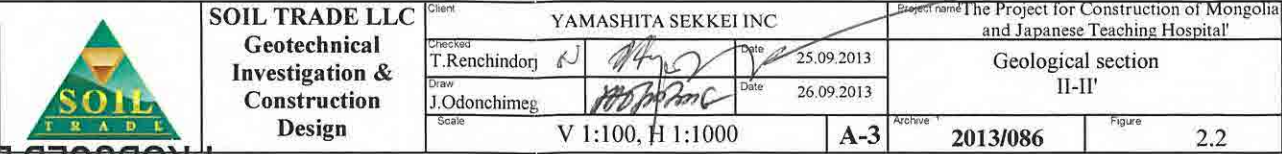 SOIL
TRADE
SOIL TRADE LLC
Geotechnical
Investigation &
Construction
Design
Client
YAMASHITA SEKKEI INC
Checked
T.Renchindorj
Date
25.09.2013
Draw
J.Odonchimeg
Date
26.09.2013
Scale
V 1:100, H 1:1000
A-3
Project name
The Project for Construction of Mongolia
and Japanese Teaching Hospital'
Geological section
II-II'
Archive
2013/086
Figure
2.2